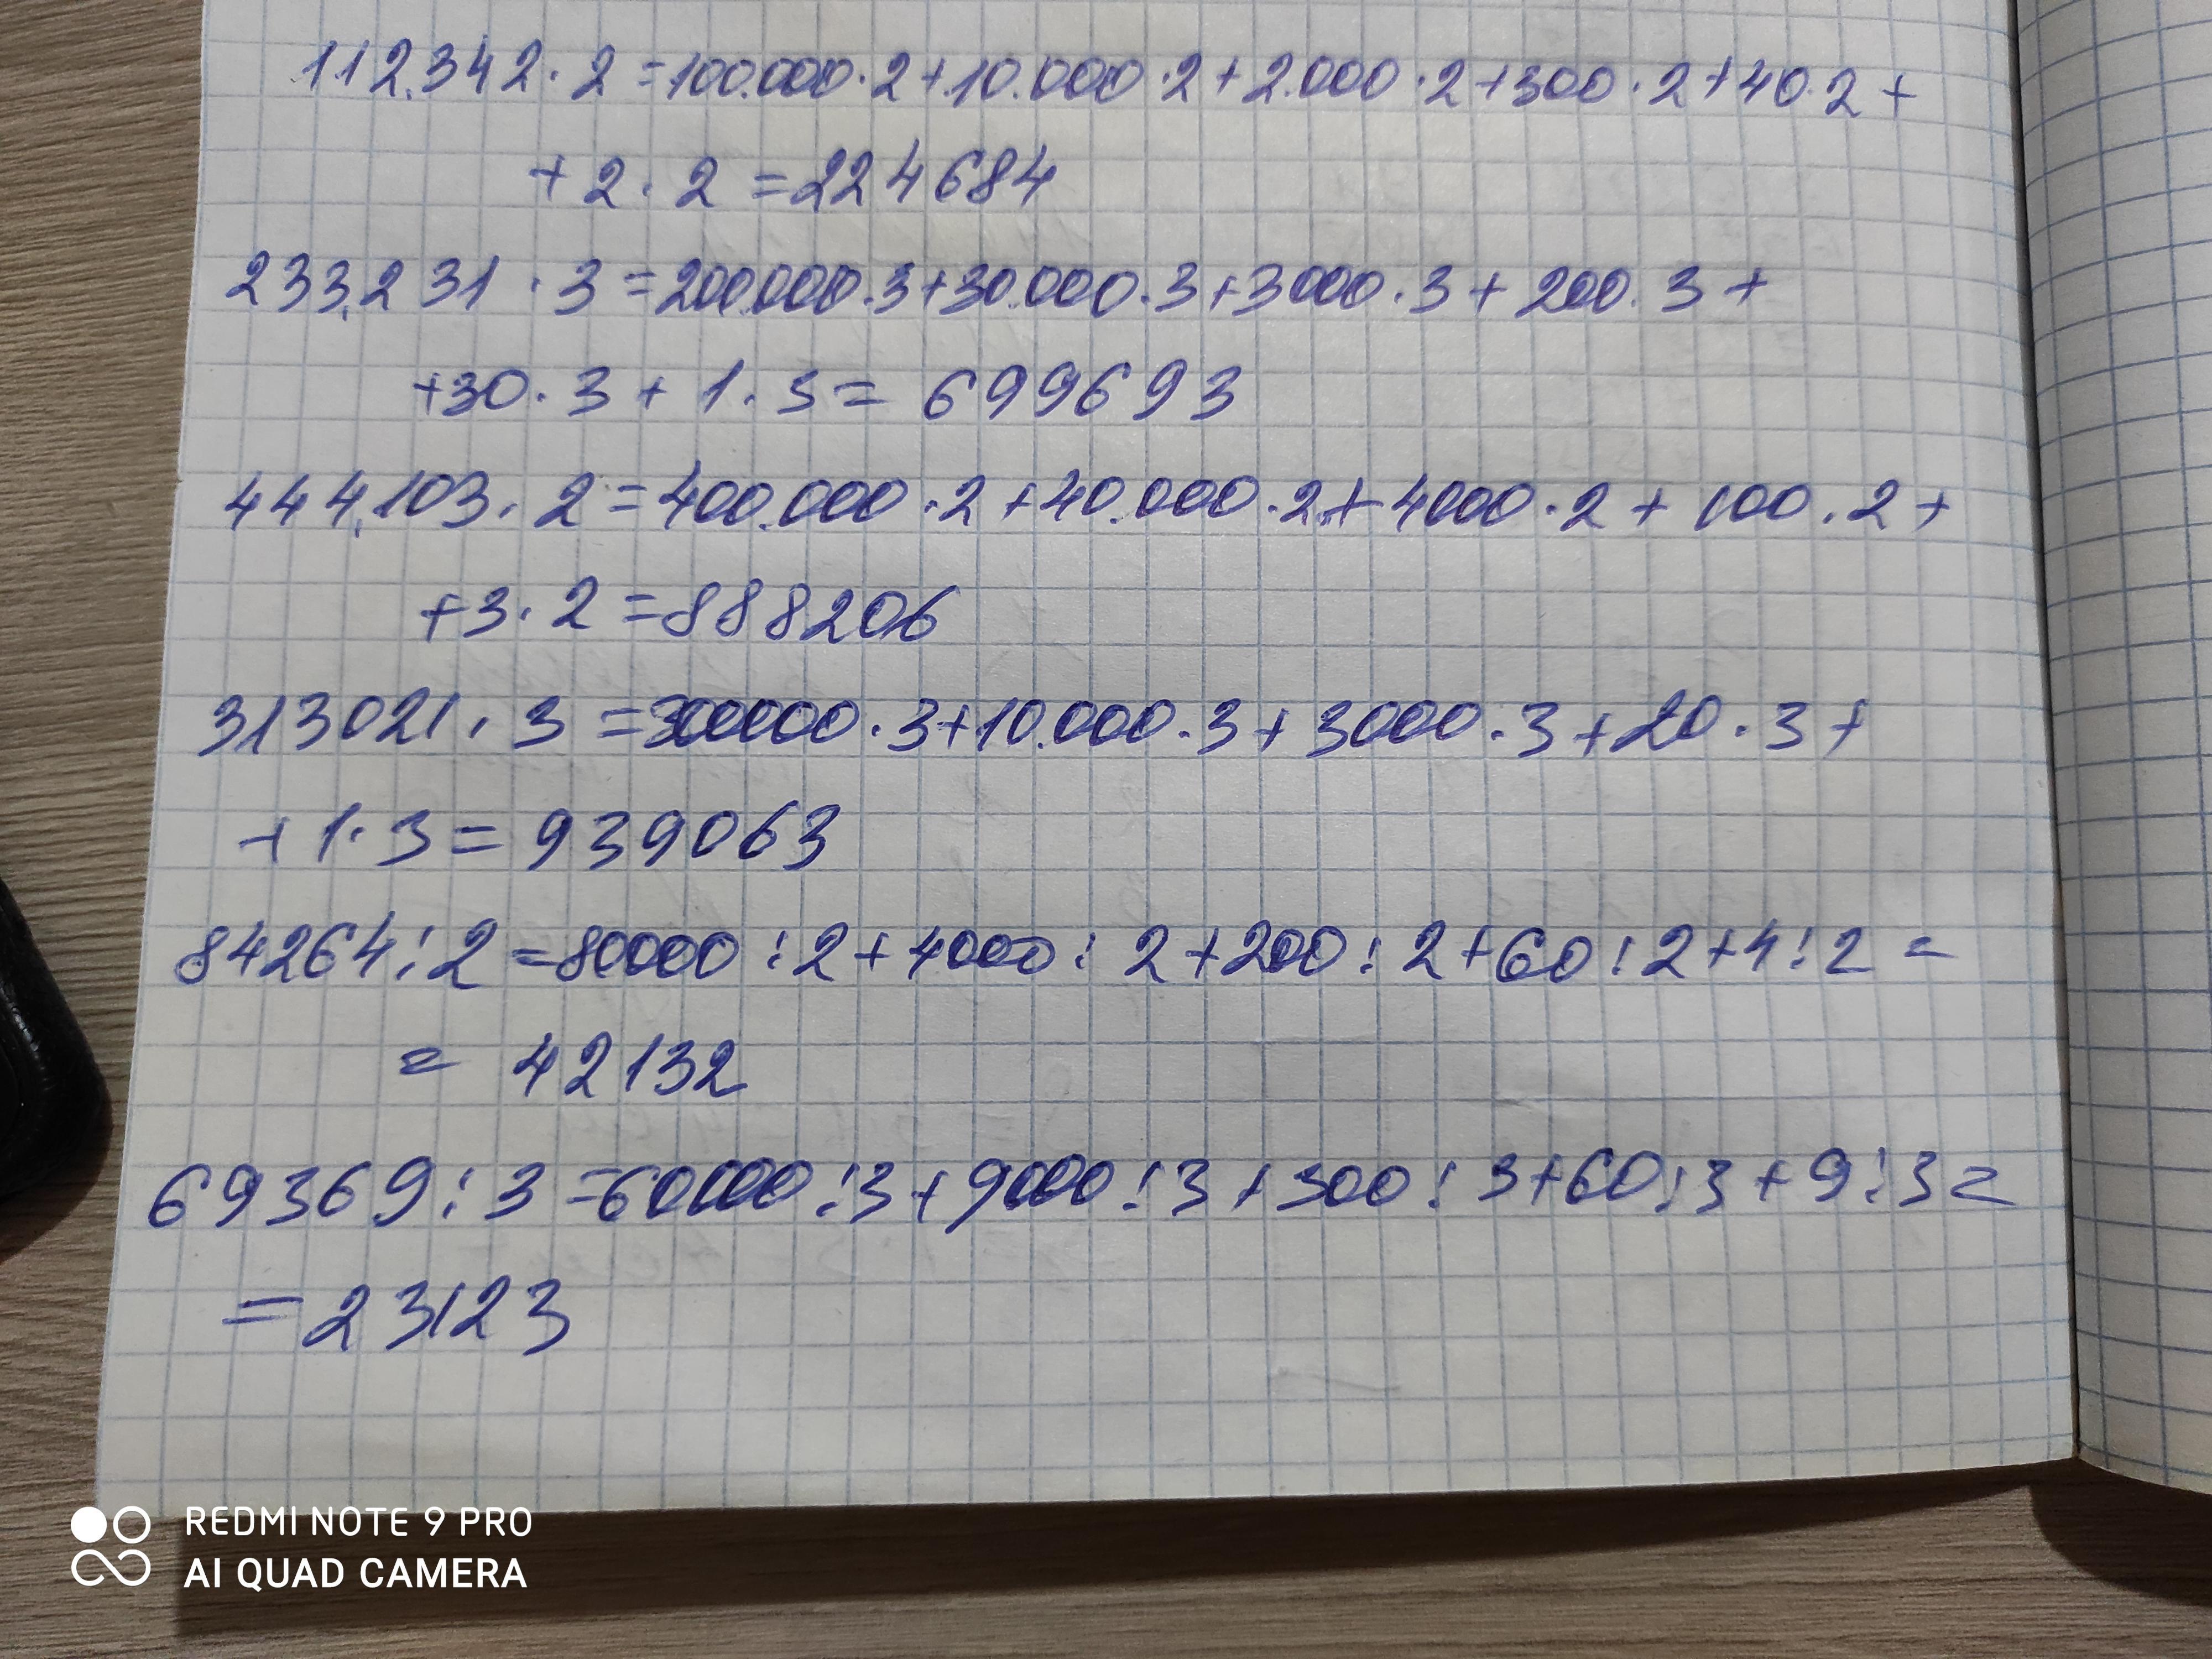 112.342·2=100.000·2+10.000·2+2.000·2+300·2+40·2+
+2·2=224684
233.231·3=200.000·3+30.000·3+3000·3+200·3+
+30·3+1·3=699693
444.103·2=400.000·2+40.000·2+4000·2+100·2+
+3·2=888206
313021·3=300000·3+10.000·3+3000·3+20·3+
+1·3=939063
84264:2=80000:2+4000:2+200:2+60:2+4:2=
=42132
69369:3=60000:3+9000:3+300:3+60:3+9:3=
=23123
REDMI NOTE 9 PRO
AI QUAD CAMERA